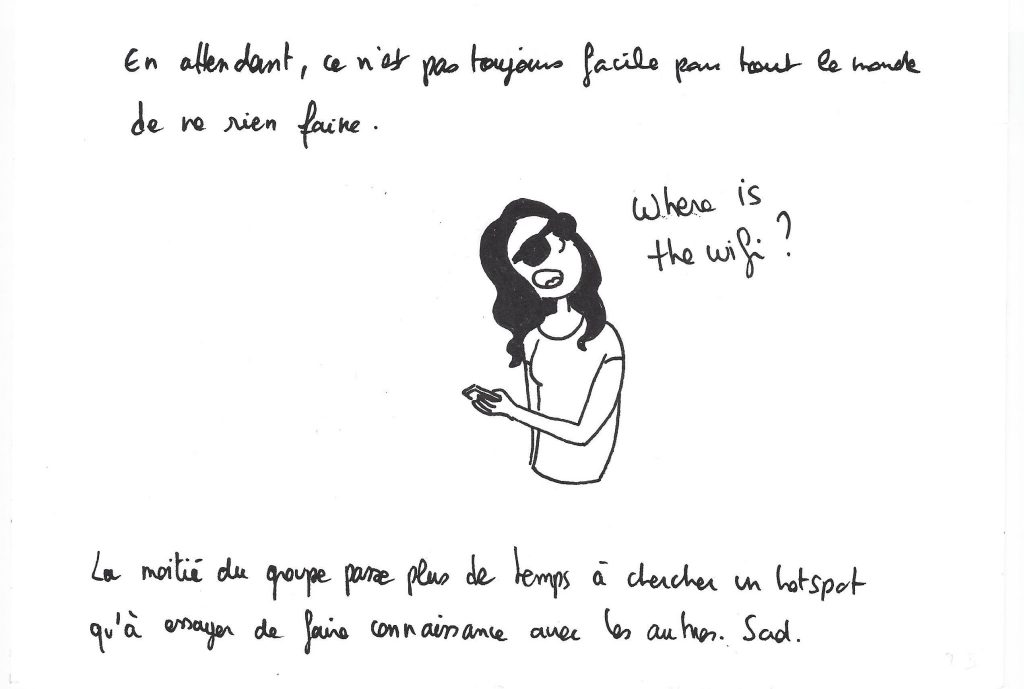 En attendant, ce n'est pas toujours facile pour tout le monde
de ne rien faire.
Where is
the wifi ?
La moitié du groupe passe plus de temps à chercher un hotspot
qu'à essayer de faire connaissance avec les autres. Sad.